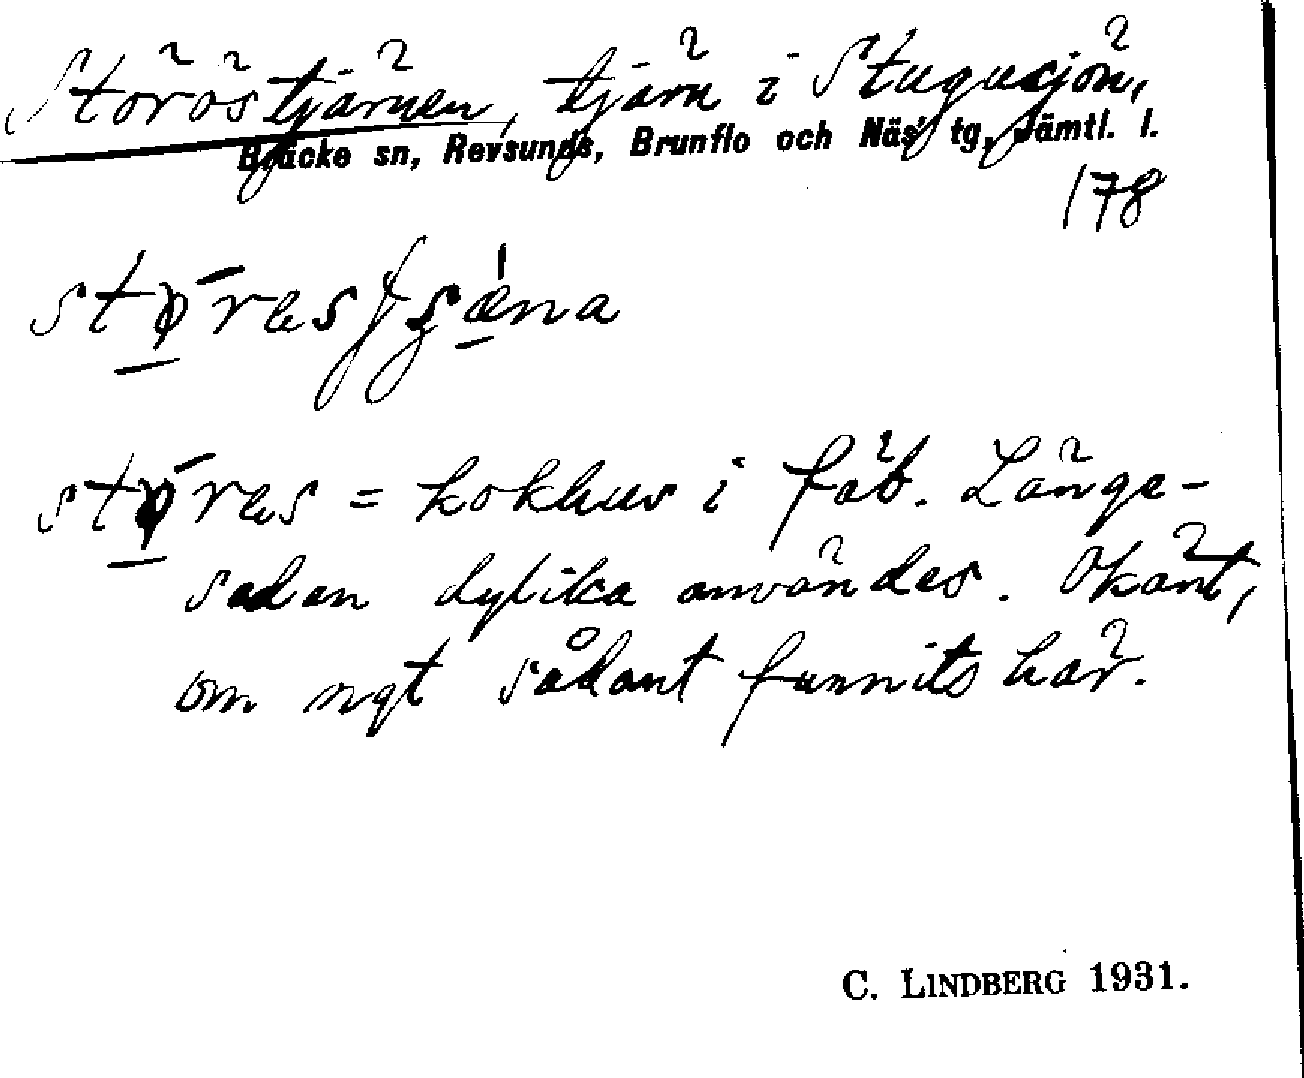 Störöstjärnen, tjärn i Stugusjön,
Bräcke sn, Revsunds, Brunflo och Näs' tg, Jämtl. l.
178
stø̱̄ræsʃʂǽ̱na
stø̱̄ræs = kokhus i fäb. Länge-
sedan dylika användes. Okänt,
om ngt sådant funnits här.
C. LINDBERG 1931.